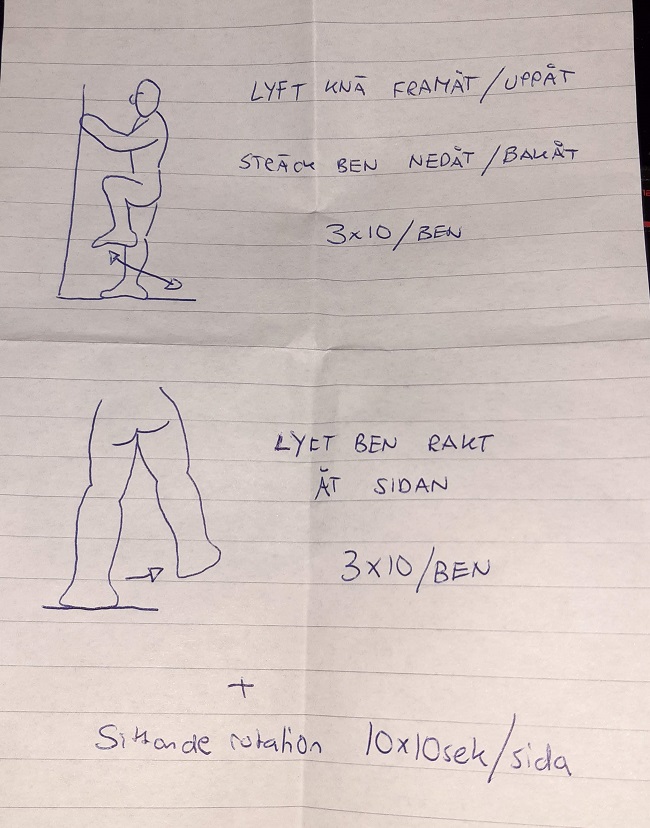 LYFT KNÄ FRAMÅT/UPPÅT
STRÄCK BEN NEDÅT/BAKÅT
3x10/BEN
LYFT BEN RAKT
ÅT SIDAN
3x10/BEN
+
Sittande rotation 10x10sek/sida